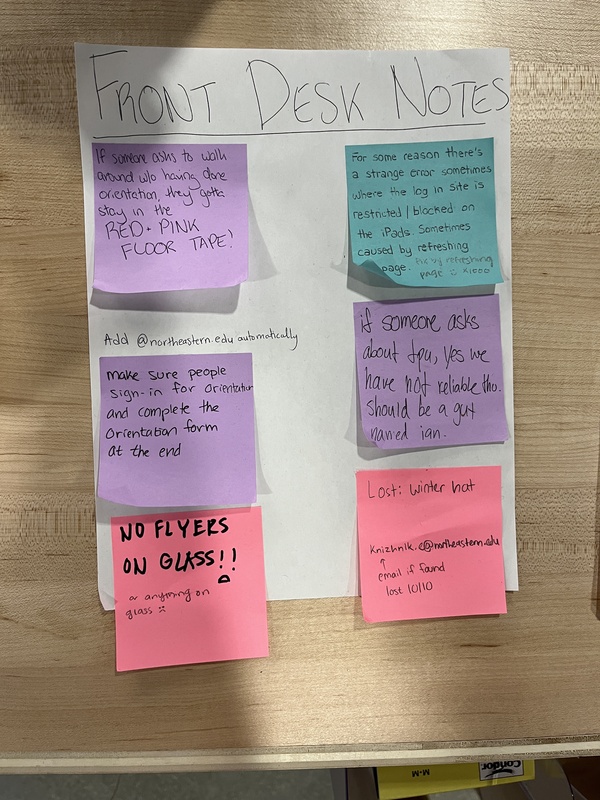 FRONT DESK NOTES
If someone asks to walk
around w/o having done
orientation, they gotta
stay in the
RED + PINK
FLOOR TAPE!
Add @northeastern.edu automatically
make sure people
sign-in for Orientation
and complete the
Orientation form
at the end
NO FLYERS
ON GLASS!!
or anything on
glass :(
For some reason there's
a strange error sometimes
where the log in site is
restricted / blocked on
the iPads. Sometimes
caused by refreshing
page. Fix by refreshing
page :) x1000
if someone asks
about tpu, yes we
have not reliable tho.
Should be a guy
named ian.
Lost: winter hat
Knizhnik.e@northeastern.edu
↑
email if found
lost 10/10
Condor
M-M